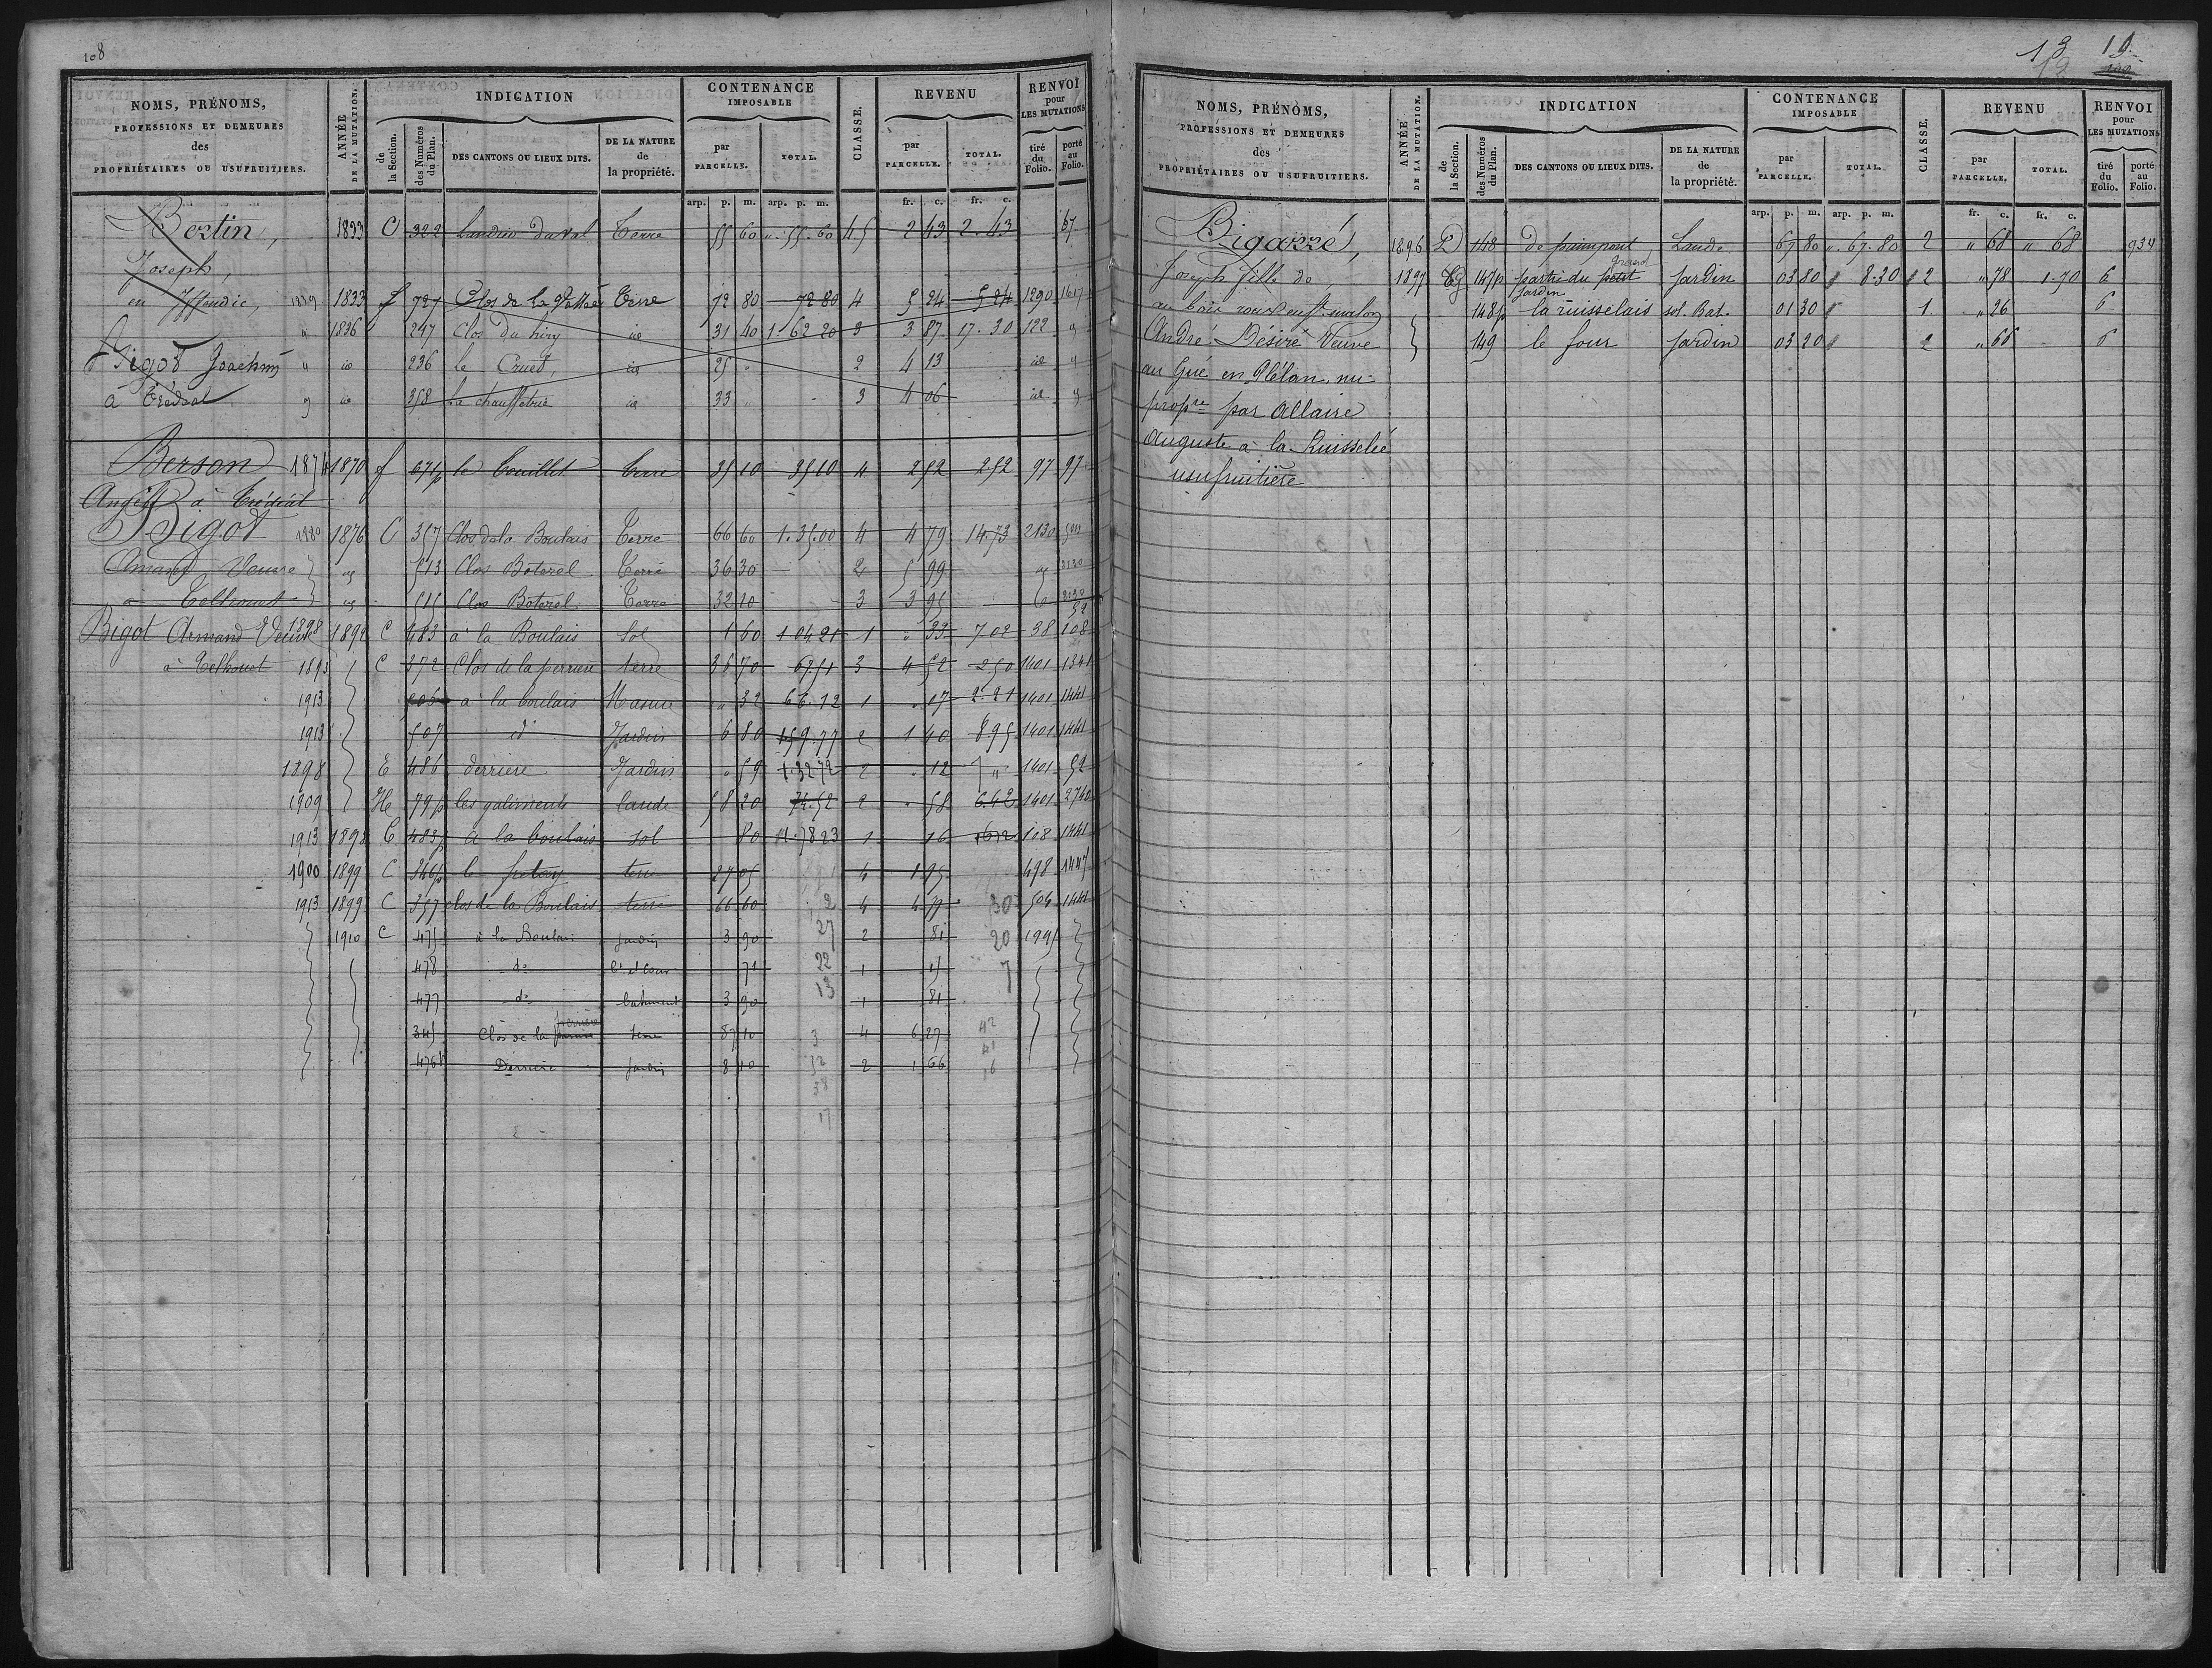 108
NOMS, PRÉNOMS, PROFESSIONS ET DEMEURES des PROPRIÉTAIRES OU USUFRUITIERS.
ANNÉE DE LA MUTATION.
INDICATION
de la Section.
des Numéros du Plan.
DES CANTONS OU LIEUX DITS.
DE LA NATURE de la propriété.
CONTENANCE IMPOSABLE
par PARCELLE.
TOTAL.
CLASSE.
REVENU
par PARCELLE.
TOTAL.
RENVOI pour LES MUTATIONS
tiré du Folio.
porté au Folio.
arp. p. m. arp. p. m. fr. c. fr. c.
Bertin, 1833 C 322 Landier du Val Terre 55 60 " 55. 60 4 5 2 43 2. 43 67
Joseph,
en Iffendic, 1833 f 727 Clos de la Vallée Terre 72 80 72 80 4 5 24 5 24 1290 1617
" 1836 247 Clos du hiry id 31 40 1 62 20 3 3 87 17. 30 122 "
Bigot Joachim " id 236 le Crued, id 25 " 2 4 13 id "
à Trédéal " id 358 La chauffetrie id 33 " 3 4 06 id "
Berson 1874 1870 f 671p le Couillet terre 35 10 35 10 4 2 52 2 52 97 97
à Trédéal
Bigot 1880 1876 C 357 Clos de la Boulais Terre 66 60 1. 35. 00 4 4 79 14. 73 2130 504
Amand Veuve 513 Clos Boterel Terre 36 30 2 5 99 2130
à Telhouet 515 Clos Boterel Terre 32 10 3 3 95
Bigot Armand Veuve 1898 1892 C 483 à la Boulais Sol 1 60 1 04 21 1 " 33 7 02 38 108
à Telhouet 1893 C 372 Clos de la perriere terre 35 70 67 51 3 4 52 2 50 1401 1341
1913 à la boulais Masure " 32 66. 12 1 " 17 2. 21 1401 1441
1913 507 d° Jardin 6 80 159. 77 2 1 40 8. 95 1401 1441
1898 E 486 derriere Jardin " 59 1. 32 72 2 " 12 7 " 1401 52
1909 H 79p les galiments lande 58 20 74. 52 2 " 58 6. 42 1401 2740
1913 1898 C 483p a la boulais sol 80 1. 78 23 1 16 16 72 108 1441
1900 1899 C 346p le terre 27 05 4 1 95 498 1447
1913 1899 C 357 clos de la Boulais terre 66 60 2 4 4 79 30 504 1441
1910 C 475 à la Boulais Jardin 3 90 27 2 81 20 1995
478 d° bt et Cour 71 22 1 15 7
477 d° batiment 3 90 13 1 81
345 Clos de la perriere terre 87 10 3 4 6 27 42
476p Derriere Jardin 8 10 52 2 1 66 16
38
17
13 10
NOMS, PRÉNOMS, PROFESSIONS ET DEMEURES des PROPRIÉTAIRES OU USUFRUITIERS.
ANNÉE DE LA MUTATION.
INDICATION
de la Section.
des Numéros du Plan.
DES CANTONS OU LIEUX DITS.
DE LA NATURE de la propriété.
CONTENANCE IMPOSABLE
par PARCELLE.
TOTAL.
CLASSE.
REVENU
par PARCELLE.
TOTAL.
RENVOI pour LES MUTATIONS
tiré du Folio.
porté au Folio.
arp. p. m. arp. p. m. fr. c. fr. c.
Bigarré, 1896 D 148 de paimpont Lande 67 80 " 67. 80 2 " 68 " 68 934
Joseph fille de, 1897 G 147p partie du petit grand jardin Jardin 03 80 8. 30 2 " 78 1. 70 6
au bois roux en St malon 148p la ruisselais sol. Bat. 01 30 1 " 26 6
André Désiré Veuve 149 le four Jardin 03 20 2 " 66 6
au Gué en Plélan, nu-
propre par Allaire
Auguste à la Ruisselée
usufruitière